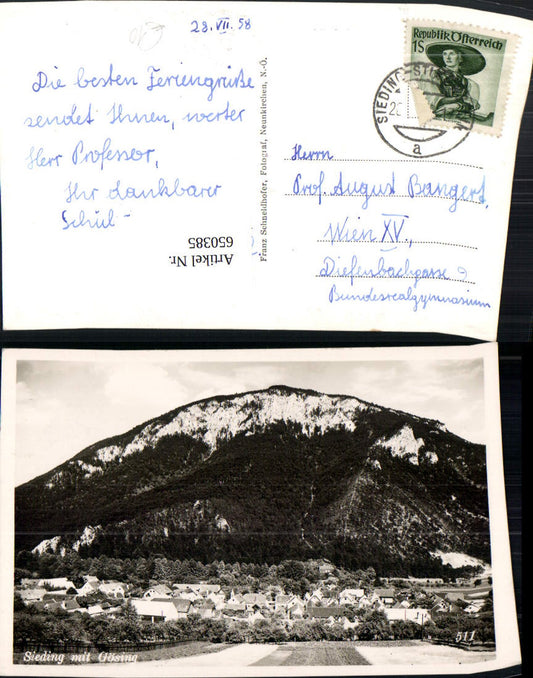 28.VII.58
Die besten Feriengrüße
sendet Ihnen, werter
Herr Professor,
Ihr dankbarer
Schül-
Artikel Nr.
650385
Franz Schmeldhofer, Fotograf, Neunkirchen, N.-Ö.
Republik Österreich
1S
SIEDING-
a
Herrn
Prof. August Bangert,
Wien XV.,
Diefenbachgasse 9
Bundesrealgymnasium
Sieding mit Gösing
511